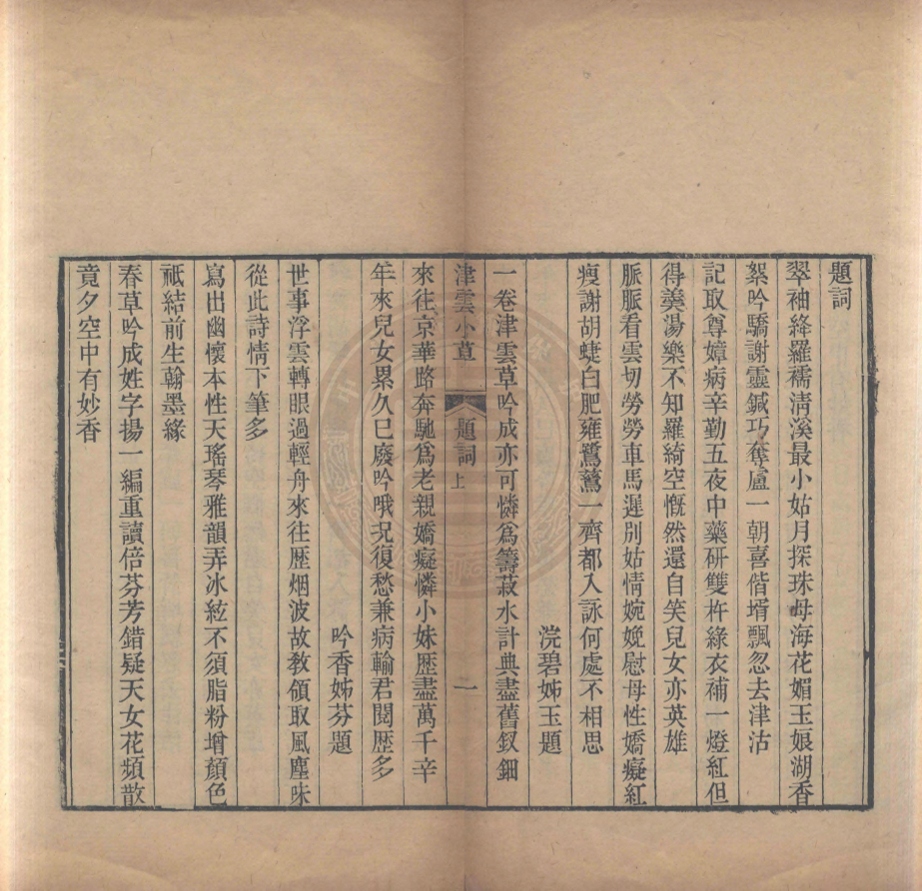 題詞
翠袖絳羅襦淸溪最小姑月探珠母海花媚玉娘湖香
絮吟驕謝靈鍼巧奪盧一朝喜偕壻飄忽去津沽
記取尊嫜病辛勤五夜中藥硏雙杵綠衣補一燈紅但
得羹湯樂不知羅綺空慨然還自笑兒女亦英雄
脈脈看雲切勞勞車馬遲別姑情婉娩慰母性嬌癡紅
瘦謝胡蜨白肥雍鷺鷥一齊都入詠何處不相思
浣碧姊玉題
一卷津雲草吟成亦可憐爲籌菽水計典盡舊釵鈿
津雲小草
題詞上
一
來往京華路奔馳爲老親嬌癡憐小妹歷盡萬千辛
年來兒女累久已廢吟哦況復愁兼病輸君閱歷多
吟香姊芬題
世事浮雲轉眼過輕舟來往歷烟波故敎領取風塵味
從此詩情下筆多
寫出幽懷本性天瑤琴雅韻弄冰絃不須脂粉增顏色
祇結前生翰墨緣
春草吟成姓字揚一編重讀倍芬芳錯疑天女花頻散
竟夕空中有妙香